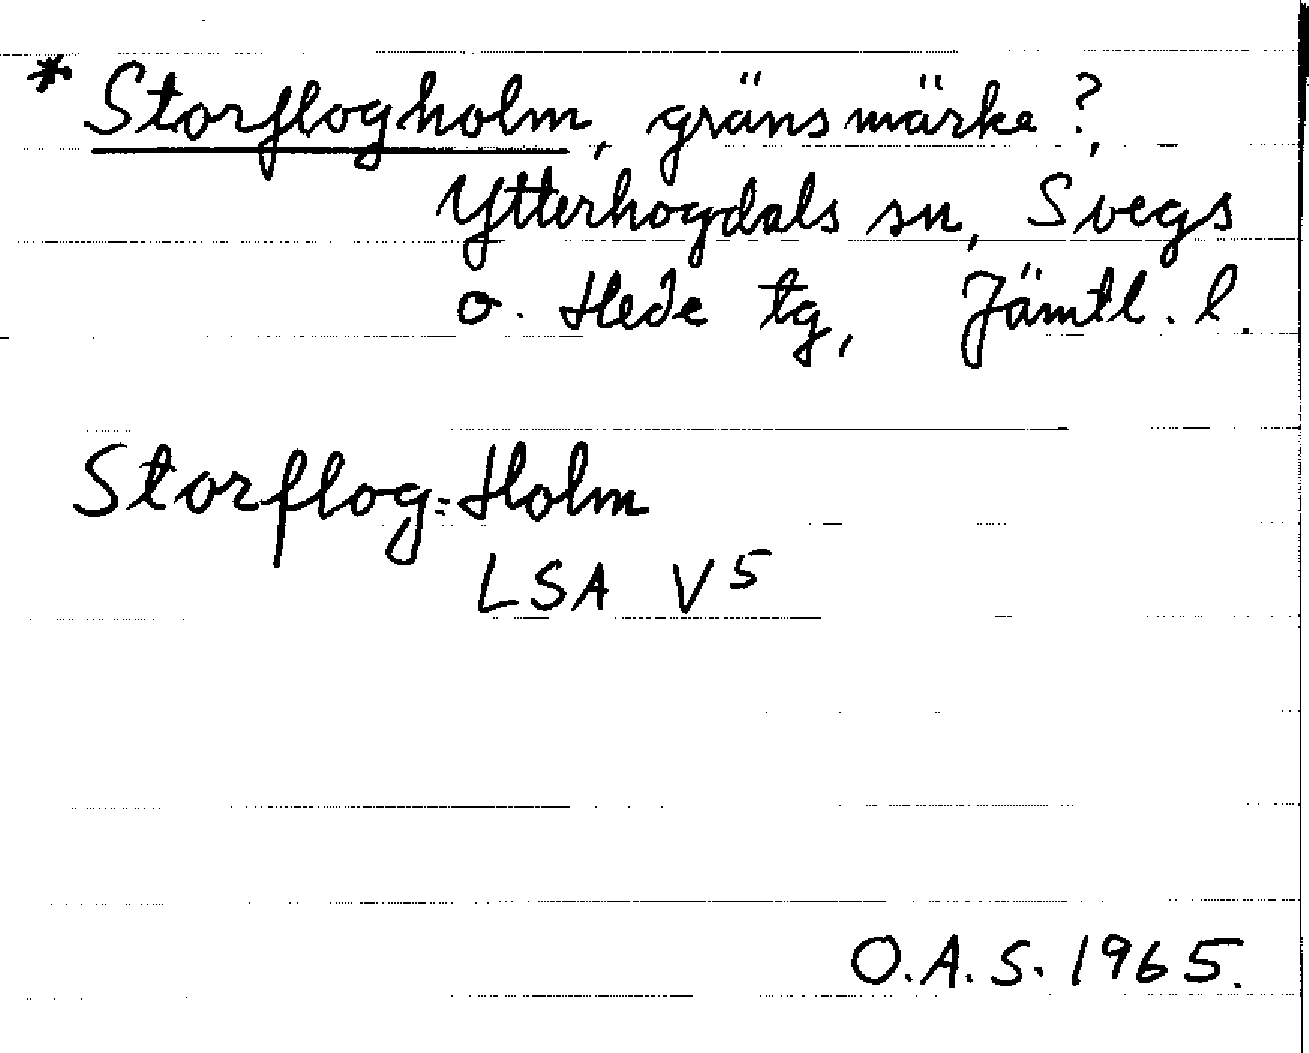 * Storflogholm, gränsmärke?,
Ytterhogdals sn, Svegs
o. Hede tg, Jämtl. l.
Storflog=Holm
LSA V5
O.A.S. 1965.